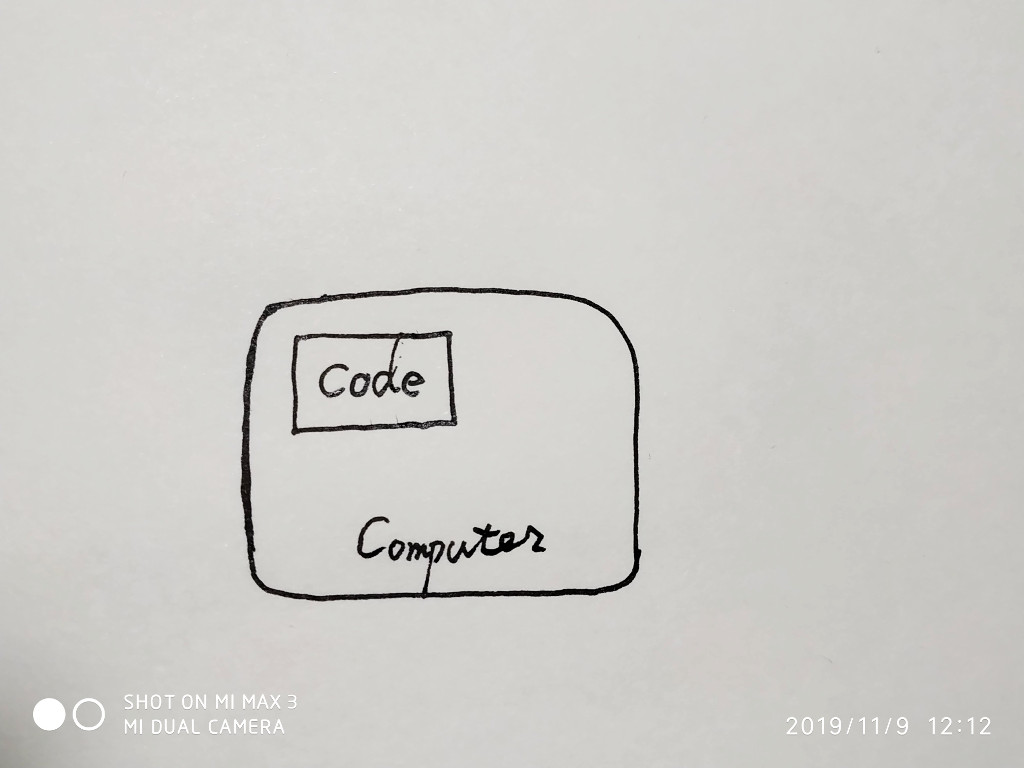 Code
Computer
SHOT ON MI MAX 3
MI DUAL CAMERA
2019/11/9 12:12